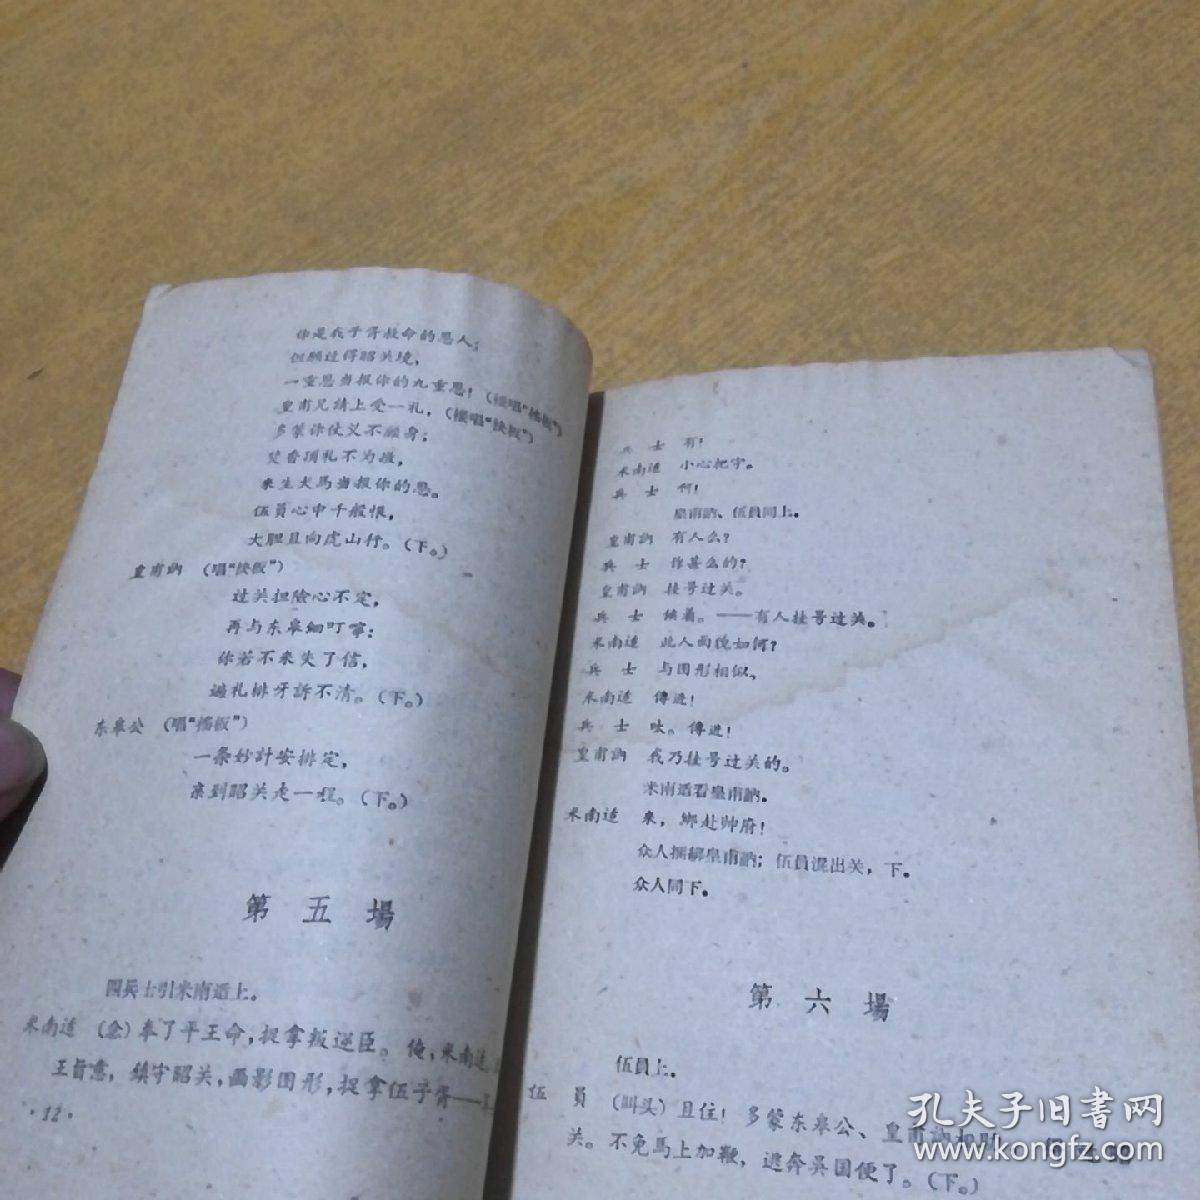 你是我子胥救命的恩人；
但願过得昭关境，
一重恩当报你的九重恩！（接唱“搖板”）
皇甫兄請上受一礼，（接唱“快板”）
多蒙你仗义不顧身；
焚香頂礼不为敬，
来生犬馬当报你的恩。
伍員心中千般恨，
大胆且向虎山行。（下。）
皇甫訥 （唱“快板”）
过关担險心不定，
再与东皋細叮嚀：
你若不来失了信，
遍礼排牙訴不清。（下。）
东皋公 （唱“搖板”）
一条妙計安排定，
亲到昭关走一程。（下。）
第 五 場
四兵士引米南适上。
米南适 （念）奉了平王命，捉拿叛逆臣。 俺，米南适，
王旨意，鎮守昭关，画影图形，捉拿伍子胥——
·12·
兵 士 有！
米南适 小心把守。
兵 士 啊！
皇甫訥、伍員同上。
皇甫訥 有人么？
兵 士 作甚么的？
皇甫訥 挂号过关。
兵 士 候着。——有人挂号过关。
米南适 此人面貌如何？
兵 士 与图形相似。
米南适 傳进！
兵 士 呔。傳进！
皇甫訥 我乃挂号过关的。
米南适看皇甫訥。
米南适 来，綁赴帅府！
众人捆綁皇甫訥；伍員混出关，下。
众人同下。
第 六 場
伍員上。
伍 員 （叫头）且住！多蒙东皋公、皇甫訥
关。不免馬上加鞭，逃奔吳国便了。（下。）
孔夫子旧書网
www.kongfz.com